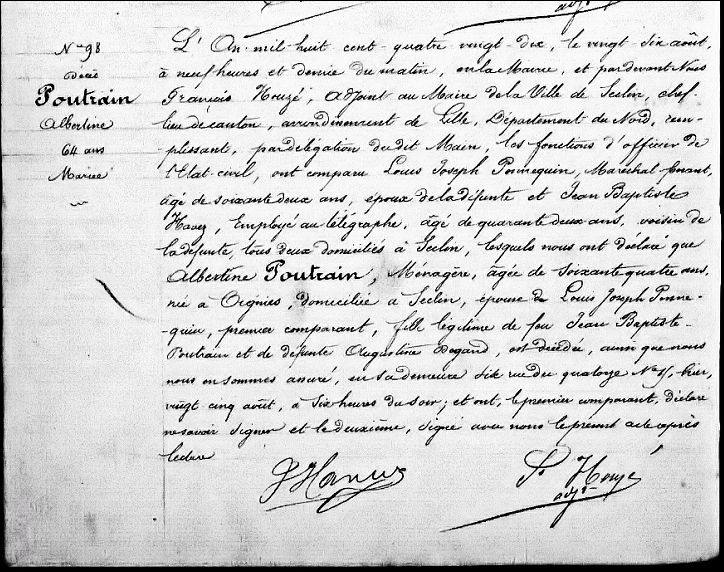 N° 98
Décès
Poutrain
Albertine
64 ans
Mariée
L'An mil huit cent quatre vingt-dix, le vingt-six août,
à neuf heures et demie du matin, en la Mairie, et pardevant Nous
François Houzé, adjoint au Maire de la Ville de Seclin, chef-
lieu de canton, arrondissement de Lille, Département du Nord, rem-
plissant, par délégation dudit Maire, les fonctions d'officier de
l'Etat-civil, ont comparu Louis Joseph Pennequin, Maréchal-ferrant,
âgé de soixante deux ans, époux de la défunte et Jean Baptiste
Havez, Employé au télégraphe, âgé de quarante deux ans, voisin de
la défunte, tous deux domiciliés à Seclin, lesquels nous ont déclaré que
Albertine Poutrain, Ménagère, âgée de soixante quatre ans,
née à Oignies, domiciliée à Seclin, épouse de Louis Joseph Penne-
quin, premier comparant, fille légitime de feu Jean Baptiste
Poutrain et de défunte Augustine Degand, est décédée, ainsi que nous
nous en sommes assuré, en sa demeure sise rue du quatorze N°, hier,
vingt-cinq août, à six heures du soir; et ont, le premier comparant, déclaré
ne savoir signer et le deuxième, signé avec nous le présent acte après
lecture
F. Houzé
adjt